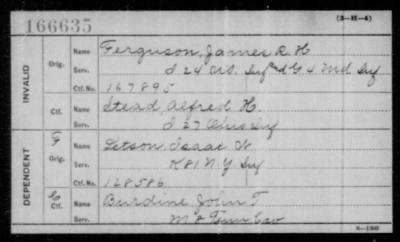 166635
(3-H-4)
INVALID
Orig.
Name Ferguson, James R. H
Serv. I 24 O. Inf & G 4 Md Inf
Ctf. No. 167895
Ctf.
Name Stead, Alfred H.
Serv. I 27 Ohio Inf
DEPENDENT
F
Orig.
Name Letson, Isaac N.
Serv. K 81 N.Y. Inf
Ctf. No. 128586
C
Ctf.
Name Burdine, John T
Serv. M 8 Tenn Cav